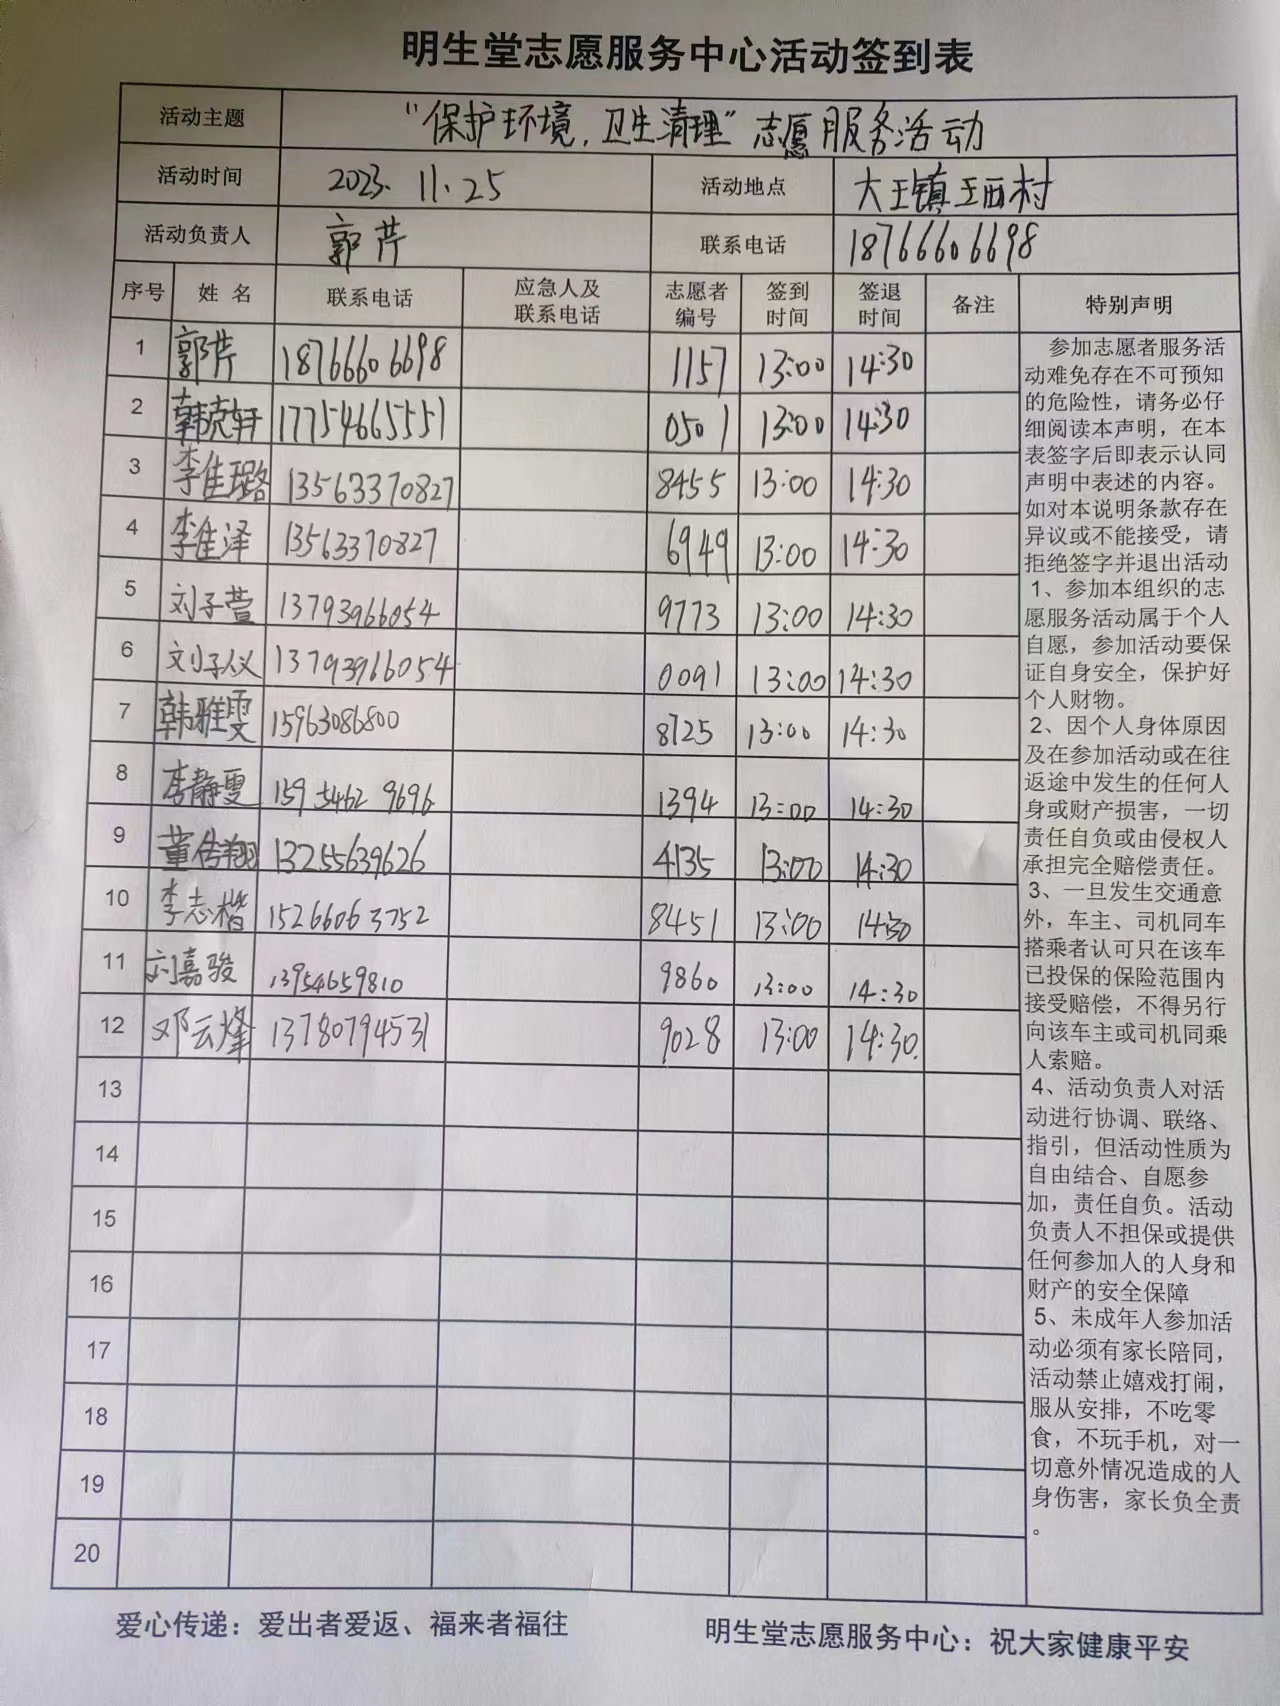 明生堂志愿服务中心活动签到表
活动主题 “保护环境，卫生清理”志愿服务活动
活动时间 2023.11.25 活动地点 大王镇王西村
活动负责人 郭芹 联系电话 18766606698
序号 姓名 联系电话 应急人及联系电话 志愿者编号 签到时间 签退时间 备注 特别声明
1 郭芹 18766606698 1157 13:00 14:30
2 韩克轩 17754665551 0501 13:00 14:30
3 李佳璐 13563370827 8455 13:00 14:30
4 李佳泽 13563370827 6949 13:00 14:30
5 刘子萱 13793966054 9773 13:00 14:30
6 刘子仪 13793966054 0091 13:00 14:30
7 韩雅雯 15963086800 8725 13:00 14:30
8 李静雯 15954629696 1394 13:00 14:30
9 董传翔 13255639626 4135 13:00 14:30
10 李志楷 15266063752 8451 13:00 14:30
11 刘嘉骏 13954659810 9860 13:00 14:30
12 邓云烽 13780794531 9028 13:00 14:30.
13
14
15
16
17
18
19
20
参加志愿者服务活
动难免存在不可预知
的危险性，请务必仔
细阅读本声明，在本
表签字后即表示认同
声明中表述的内容。
如对本说明条款存在
异议或不能接受，请
拒绝签字并退出活动
1、参加本组织的志
愿服务活动属于个人
自愿，参加活动要保
证自身安全，保护好
个人财物。
2、因个人身体原因
及在参加活动或在往
返途中发生的任何人
身或财产损害，一切
责任自负或由侵权人
承担完全赔偿责任。
3、一旦发生交通意
外，车主、司机同车
搭乘者认可只在该车
已投保的保险范围内
接受赔偿，不得另行
向该车主或司机同乘
人索赔。
4、活动负责人对活
动进行协调、联络、
指引，但活动性质为
自由结合、自愿参
加，责任自负。活动
负责人不担保或提供
任何参加人的人身和
财产的安全保障
5、未成年人参加活
动必须有家长陪同，
活动禁止嬉戏打闹，
服从安排，不吃零
食，不玩手机，对一
切意外情况造成的人
身伤害，家长负全责
。
爱心传递：爱出者爱返、福来者福往 明生堂志愿服务中心：祝大家健康平安